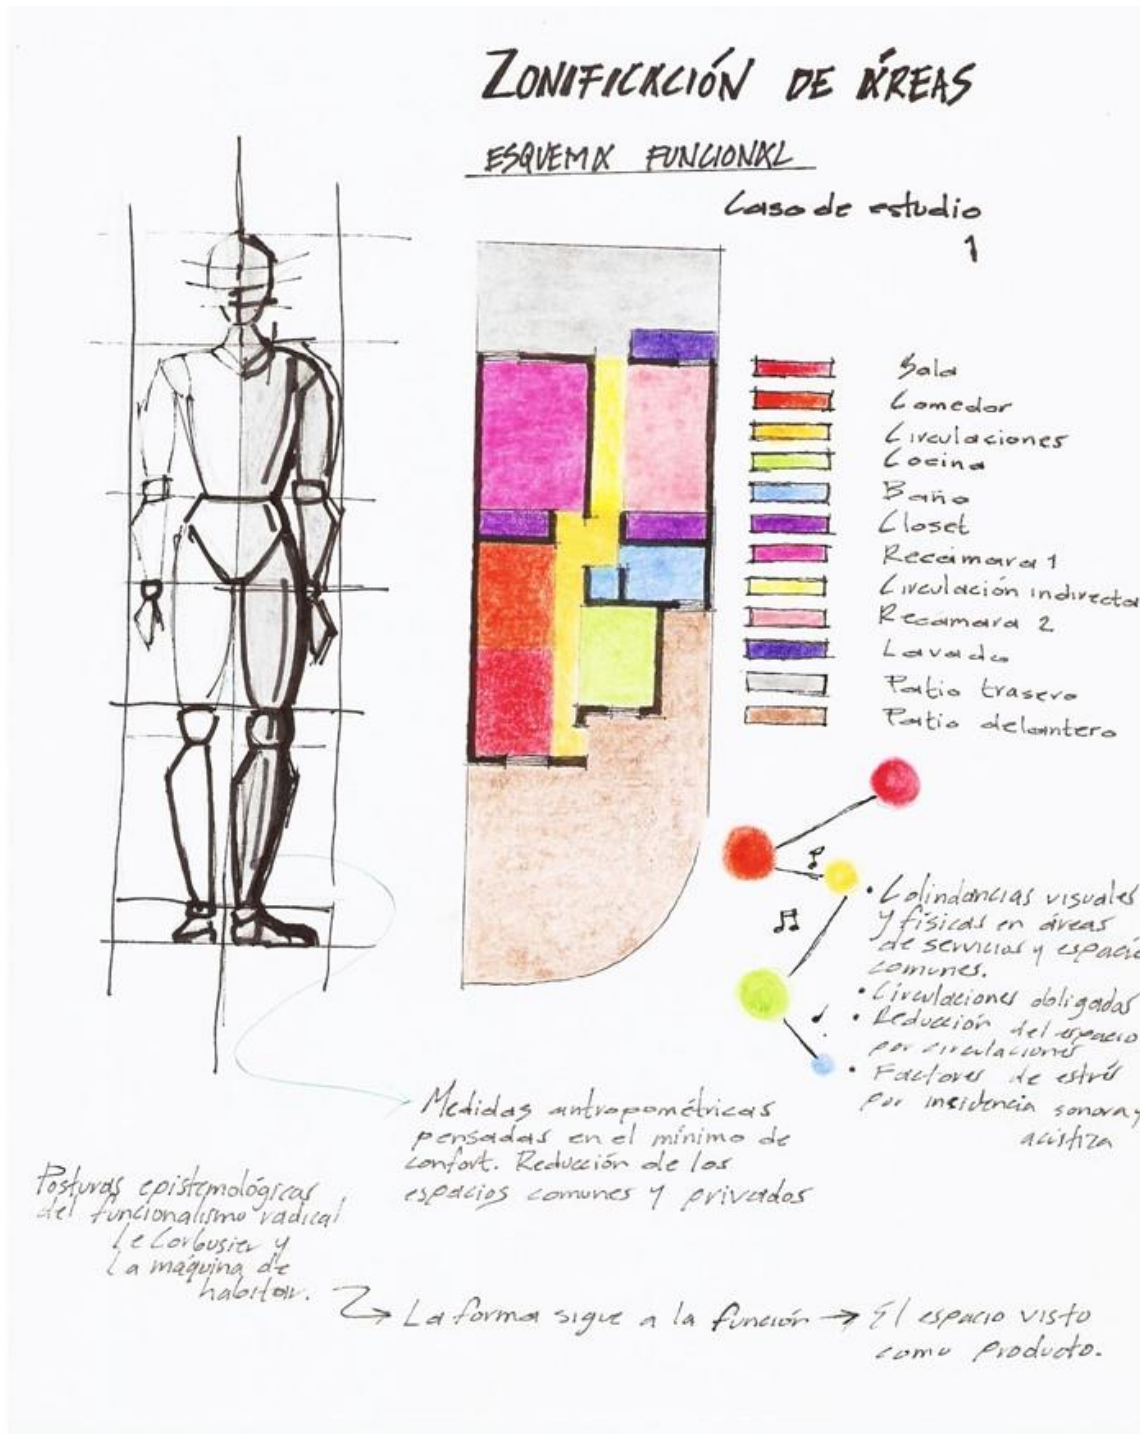 ZONIFICACIÓN DE ÁREAS
ESQUEMA FUNCIONAL
Caso de estudio
1
Sala
Comedor
Circulaciones
Cocina
Baño
Closet
Recámara 1
Circulación indirecta
Recámara 2
Lavado
Patio trasero
Patio delantero
• Colindancias visuales
y físicas en áreas
de servicios y espacio
comunes.
• Circulaciones obligadas
• Reducción del espacio
por circulaciones
• Factores de estrés
por incidencia sonora y
acústica
Medidas antropométricas
pensadas en el mínimo de
confort. Reducción de los
espacios comunes y privados
Posturas epistemológicas
del funcionalismo radical
Le Corbusier y
La máquina de
habitar.
La forma sigue a la función → El espacio visto
como producto.